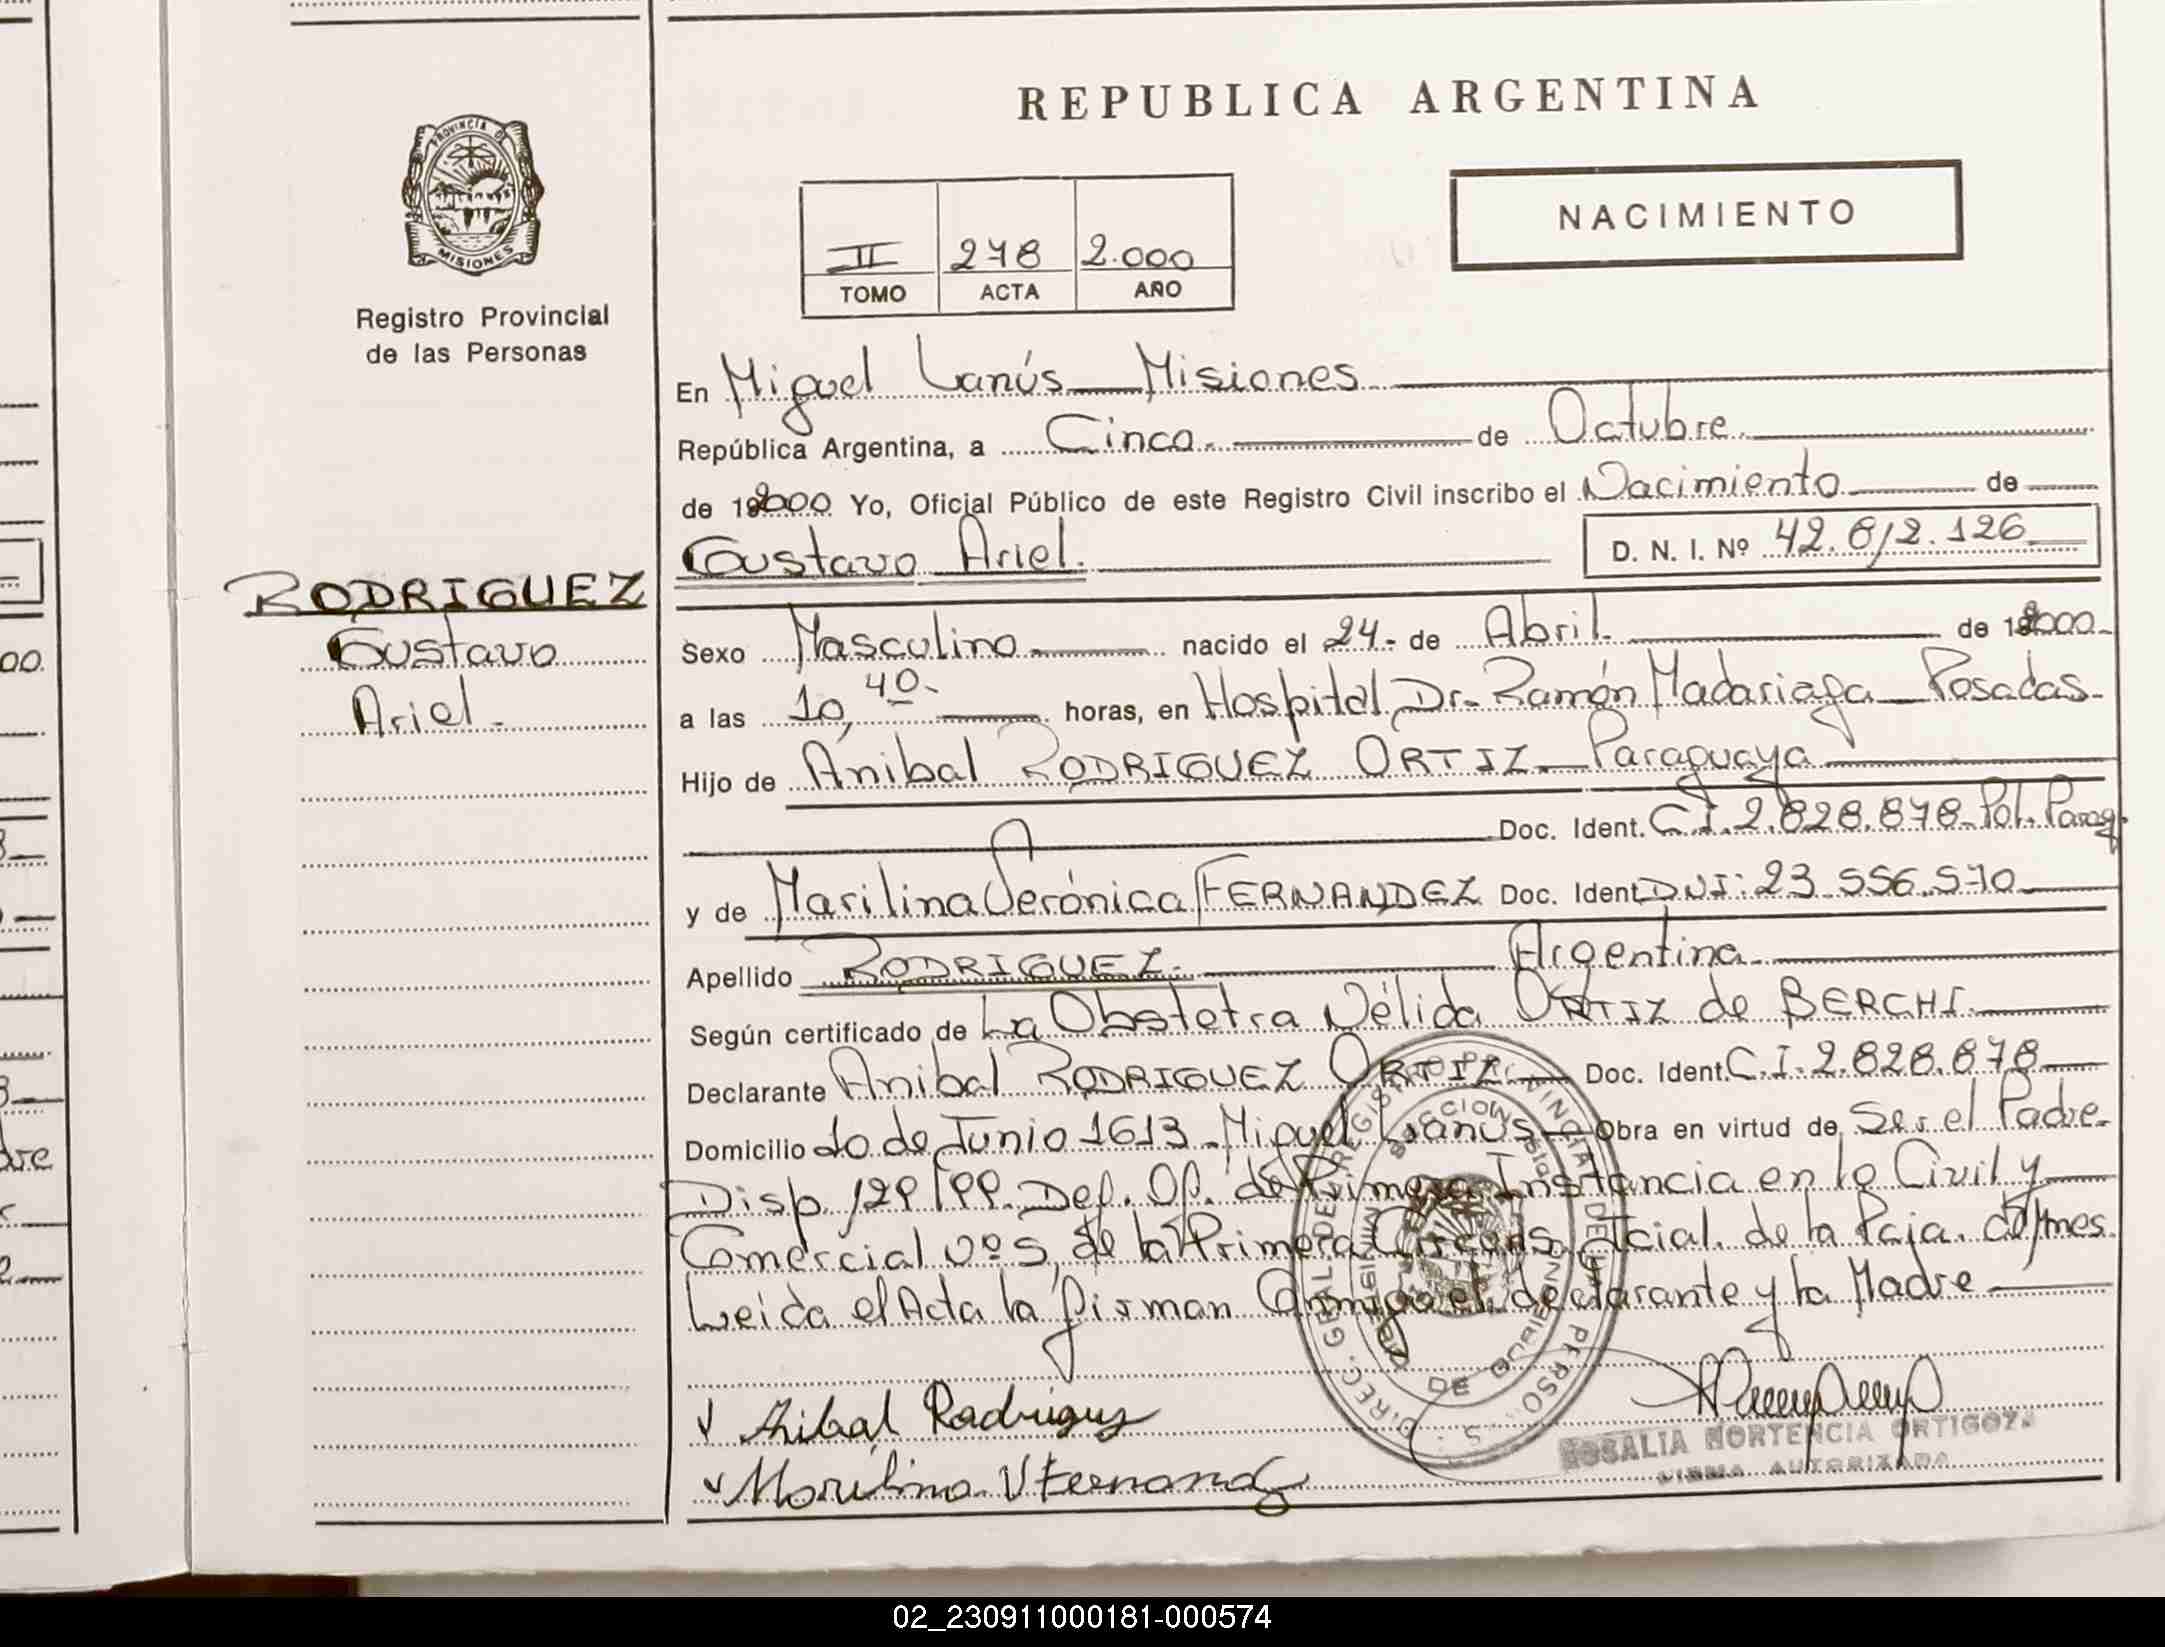 REPUBLICA ARGENTINA
PROVINCIA DE
MISIONES
Registro Provincial
de las Personas
II 278 2.000
TOMO ACTA AÑO
NACIMIENTO
En Miguel Lanús Misiones
República Argentina, a Cinco. de Octubre.
de 2000 Yo, Oficial Público de este Registro Civil inscribo el Nacimiento de
Gustavo Ariel. D. N. I. Nº 42.812.126
RODRIGUEZ
Gustavo
Ariel.
Sexo Masculino nacido el 24. de Abril. de 2000
a las 10,40 horas, en Hospital Dr. Ramón Madariaga Posadas.
Hijo de Anibal RODRIGUEZ ORTIZ Paraguaya
Doc. Ident. C.I. 2.828.878 Pol. Parag.
y de Marilina Verónica FERNANDEZ Doc. Ident. DNI: 23.556.570
Apellido RODRIGUEZ. Argentina
Según certificado de La Obstetra Nélida ORTIZ de BERCHI.
Declarante Anibal RODRIGUEZ ORTIZ Doc. Ident. C.I. 2.828.878
Domicilio 20 de Junio 1613 Miguel Lanús Obra en virtud de Ser el Padre.
Disp. 129/99. Def. Of. de Primera Instancia en lo Civil y
Comercial Nº 5, de la Primera Circuns. de la Pcia.
Leida el Acta la firman Conmigo el declarante y la Madre
Anibal Rodriguez
Marilina V Fernandez
ROSALIA HORTENCIA ORTIGOZA
FIRMA AUTORIZADA
02_230911000181-000574